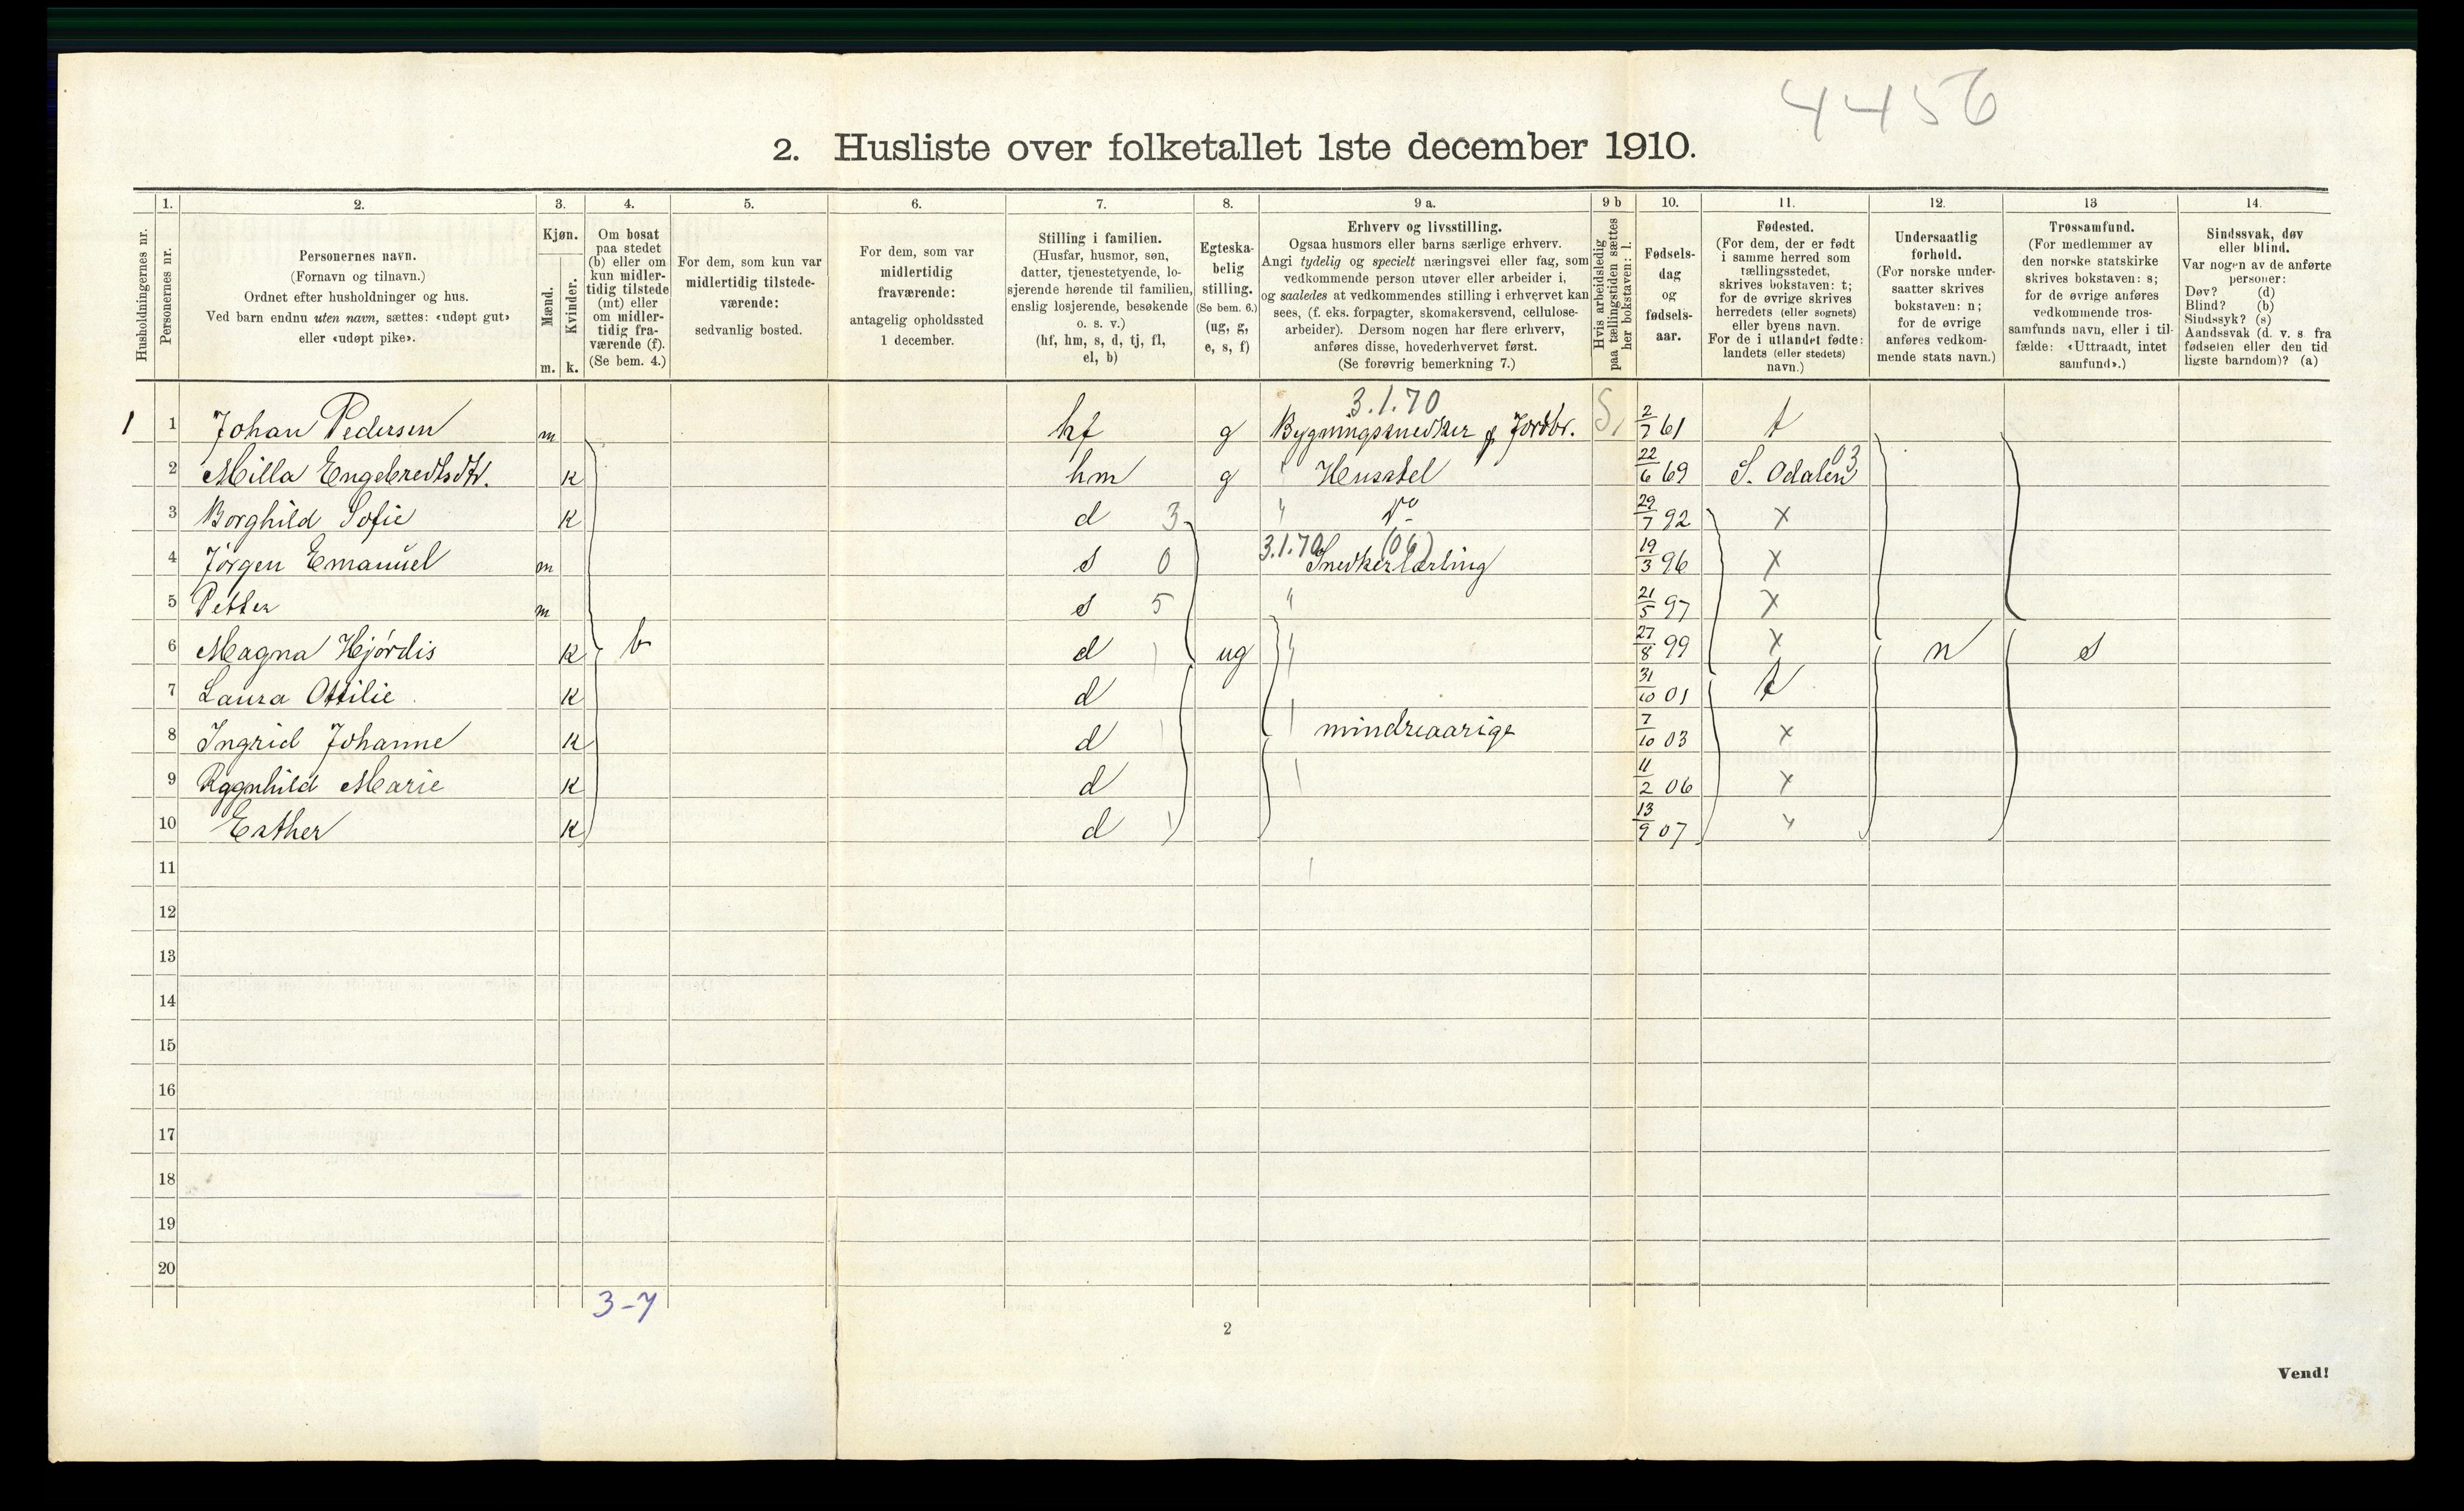 4456
2. Husliste over folketallet 1ste december 1910.
Husholdningernes nr.
1. Personernes nr.
2. Personernes navn.
(Fornavn og tilnavn.)
Ordnet efter husholdninger og hus.
Ved barn endnu uten navn, sættes: «udøpt gut»
eller «udøpt pike».
3. Kjøn.
Mænd. Kvinder.
m. k.
4. Om bosat
paa stedet
(b) eller om
kun midler-
tidig tilstede
(mt) eller
om midler-
tidig fra-
værende (f).
(Se bem. 4.)
5. For dem, som kun var
midlertidig tilstede-
værende:
sedvanlig bosted.
6. For dem, som var
midlertidig
fraværende:
antagelig opholdssted
1 december.
7. Stilling i familien.
(Husfar, husmor, søn,
datter, tjenestetyende, lo-
sjerende hørende til familien,
enslig losjerende, besøkende
o. s. v.)
(hf, hm, s, d, tj, fl,
el, b)
8. Egteska-
belig
stilling.
(Se bem. 6.)
(ug, g,
e, s, f)
9 a. Erhverv og livsstilling.
Ogsaa husmors eller barns særlige erhverv.
Angi tydelig og specielt næringsvei eller fag, som
vedkommende person utøver eller arbeider i,
og saaledes at vedkommendes stilling i erhvervet kan
sees, (f. eks. forpagter, skomakersvend, cellulose-
arbeider). Dersom nogen har flere erhverv,
anføres disse, hovederhvervet først.
(Se forøvrig bemerkning 7.)
9 b Hvis arbeidsledig
paa tællingstiden sættes
her bokstaven: l.
10. Fødsels-
dag
og
fødsels-
aar.
11. Fødested.
(For dem, der er født
i samme herred som
tællingsstedet,
skrives bokstaven: t;
for de øvrige skrives
herredets (eller sognets)
eller byens navn.
For de i utlandet fødte:
landets (eller stedets)
navn.)
12. Undersaatlig
forhold.
(For norske under-
saatter skrives
bokstaven: n;
for de øvrige
anføres vedkom-
mende stats navn.)
13 Trossamfund.
(For medlemmer av
den norske statskirke
skrives bokstaven: s;
for de øvrige anføres
vedkommende tros-
samfunds navn, eller i til-
fælde: «Uttraadt, intet
samfund».)
14. Sindssvak, døv
eller blind.
Var nogen av de anførte
personer:
Døv? (d)
Blind? (b)
Sindssyk? (s)
Aandssvak (d. v. s. fra
fødselen eller den tid
ligste barndom)? (a)
3.1.70
1 1 Johan Pedersen m hf g Bygningssnedker & Jordbr. S, 2/7 61 t
03
2 Milla Engebredtsdtr. k hm g " Husstel 22/6 69 S. Odalen
3 Borghild Sofie k d 3 " Do 29/7 92 x
3.1.70 (06)
4 Jørgen Emanuel m s 0 Snedkerlærling 19/3 96 x
5 Petter m s 5 " 21/5 97 x
6 Magna Hjørdis k b d ug " 27/8 99 x n s
7 Laura Ottilie k d 31/10 01 t
8 Ingrid Johanne k d mindreaarige 7/10 03 x
9 Ragnhild Marie k d 11/2 06 x
10 Esther k d 13/9 07 x
11
12
13
14
15
16
17
18
19
20
3-7
2
Vend!